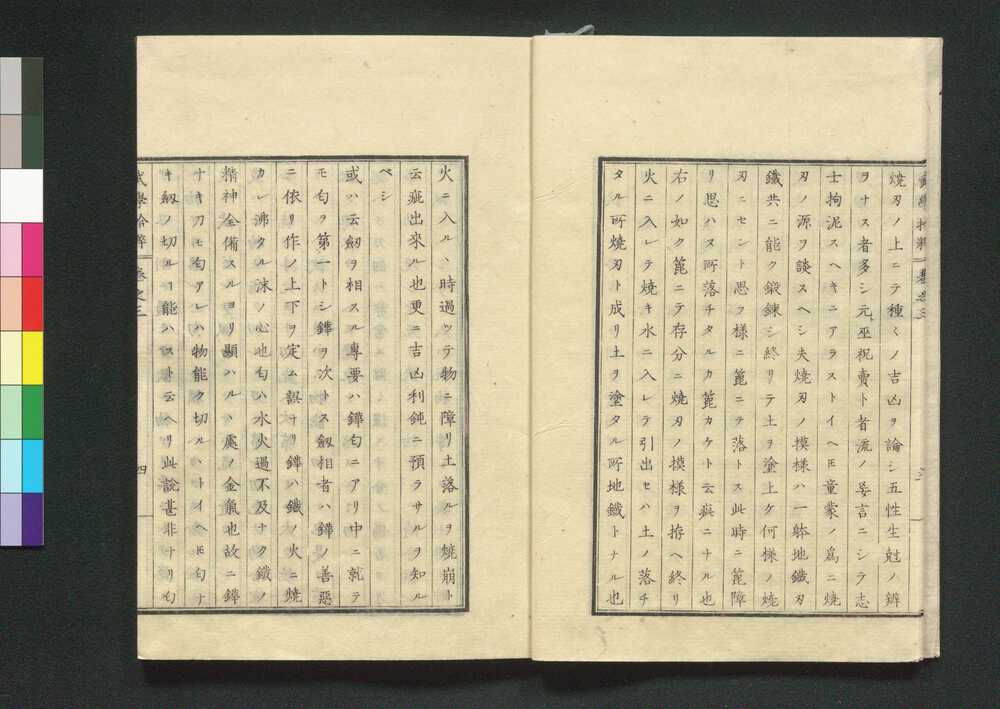 焼刃ノ上ニテ種々ノ吉凶ヲ論シ五性生尅ノ辨
ヲナス者多シ元巫祝賣卜者流ノ妄言ニシテ志
士拘泥スヘキニアラストイヘ𪜈童蒙ノ爲ニ焼
刃ノ源ヲ談スヘシ夫焼刃ノ模様ハ一躰地鐵刃
鐵共ニ能ク鍛錬シ終リテ土ヲ塗上ケ何様ノ焼
刃ニセント思フ様ニ篦ニテ落トス此時ニ篦障
リ思ハヌ所落チタルカ篦カケト云疵ニナル也
右ノ如ク篦ニテ存分ニ焼刃ノ摸様ヲ拵ヘ終リ
火ニ入レテ焼キ水ニ入レテ引出セハ土ノ落チ
タル所焼刃ト成リ土ヲ塗タル所地鐵トナル也
火ニ入ルヽ時過ツテ物ニ障リ土落ルヲ焼崩ト
云疵出來ル也更ニ吉凶利鈍ニ預ラサルヲ知ル
ベシ
或ハ云劔ヲ相スル專要ハ鏵匂ニアリ中ニ就テ
モ匂ヲ第一トシ鏵ヲ次トス劔相者ハ鏵ノ善惡
ニ依リ作ノ上下ヲ定ム誤ナリ鏵ハ鐵ノ火ニ焼
カレ沸タル沫ノ心也匂ハ水火過不及ナク鐵ノ
精神全備スルヨリ顯ハルヽ處ノ金氣也故ニ鏵
ナキ刀モ匂アレハ物能ク切ルヽトイヘ𪜈匂ナ
キ劔ノ切ルヿ能ハスト云ヘリ此說甚非ナリ匂
武學拾粹 卷之三 四